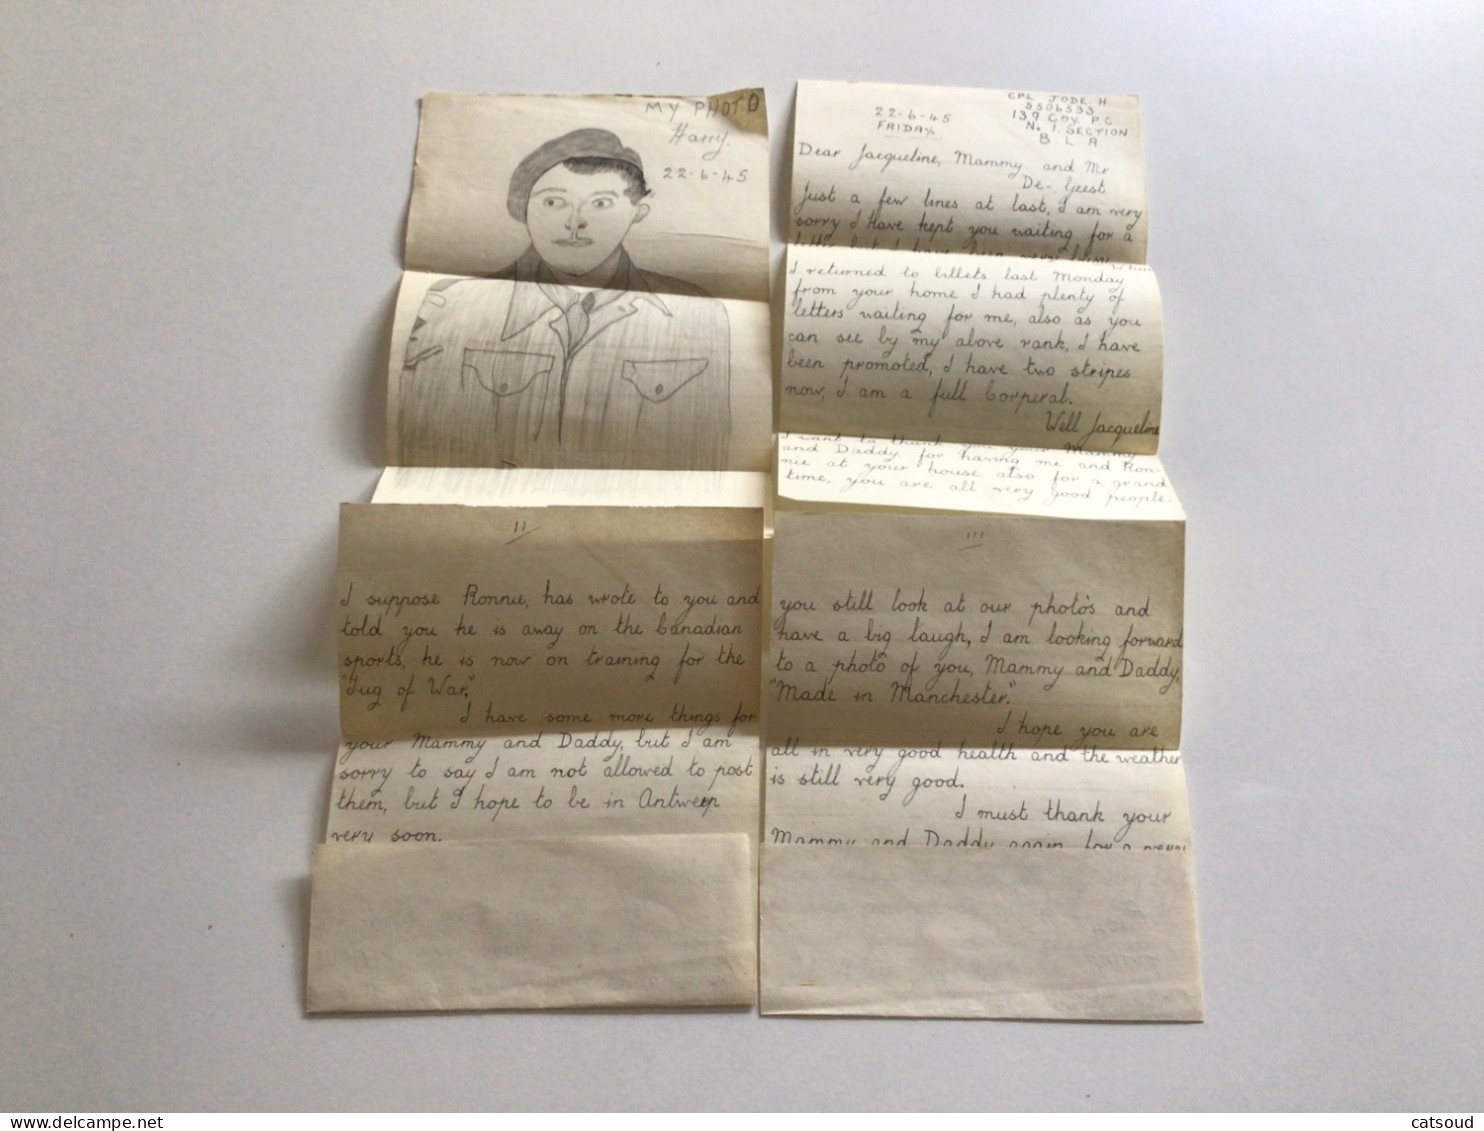 MY PHOTO
Harry.
22-6-45
CPL JODE. H
5506533
139 COY. P C
No 1. SECTION
B L A
22-6-45
FRIDAY.
Dear Jacqueline, Mammy and Mr
De- Geest
Just a few lines at last, I am very
sorry I have kept you waiting for a
letter but I have been very busy
When
I returned to billets last Monday
from your home I had plenty of
letters waiting for me, also as you
can see by my above rank, I have
been promoted, I have two stripes
now, I am a full Corperal.
Well Jacqueline
I want to thank you your Mammy
and Daddy, for having me and Ron-
nie at your house also for a grand
time, you are all very good people.
11
I suppose Ronnie, has wrote to you and
told you he is away on the Canadian
sports, he is now on training for the
"Tug of War,"
I have some more things for
your Mammy and Daddy, but I am
sorry to say I am not allowed to post
them, but I hope to be in Antwerp
very soon.
111
you still look at our photo's and
have a big laugh, I am looking forward
to a photo of you, Mammy and Daddy,
"Made in Manchester."
I hope you are
all in very good health and the weather
is still very good.
I must thank your
Mammy and Daddy again for a very
www.delcampe.net
catsoud